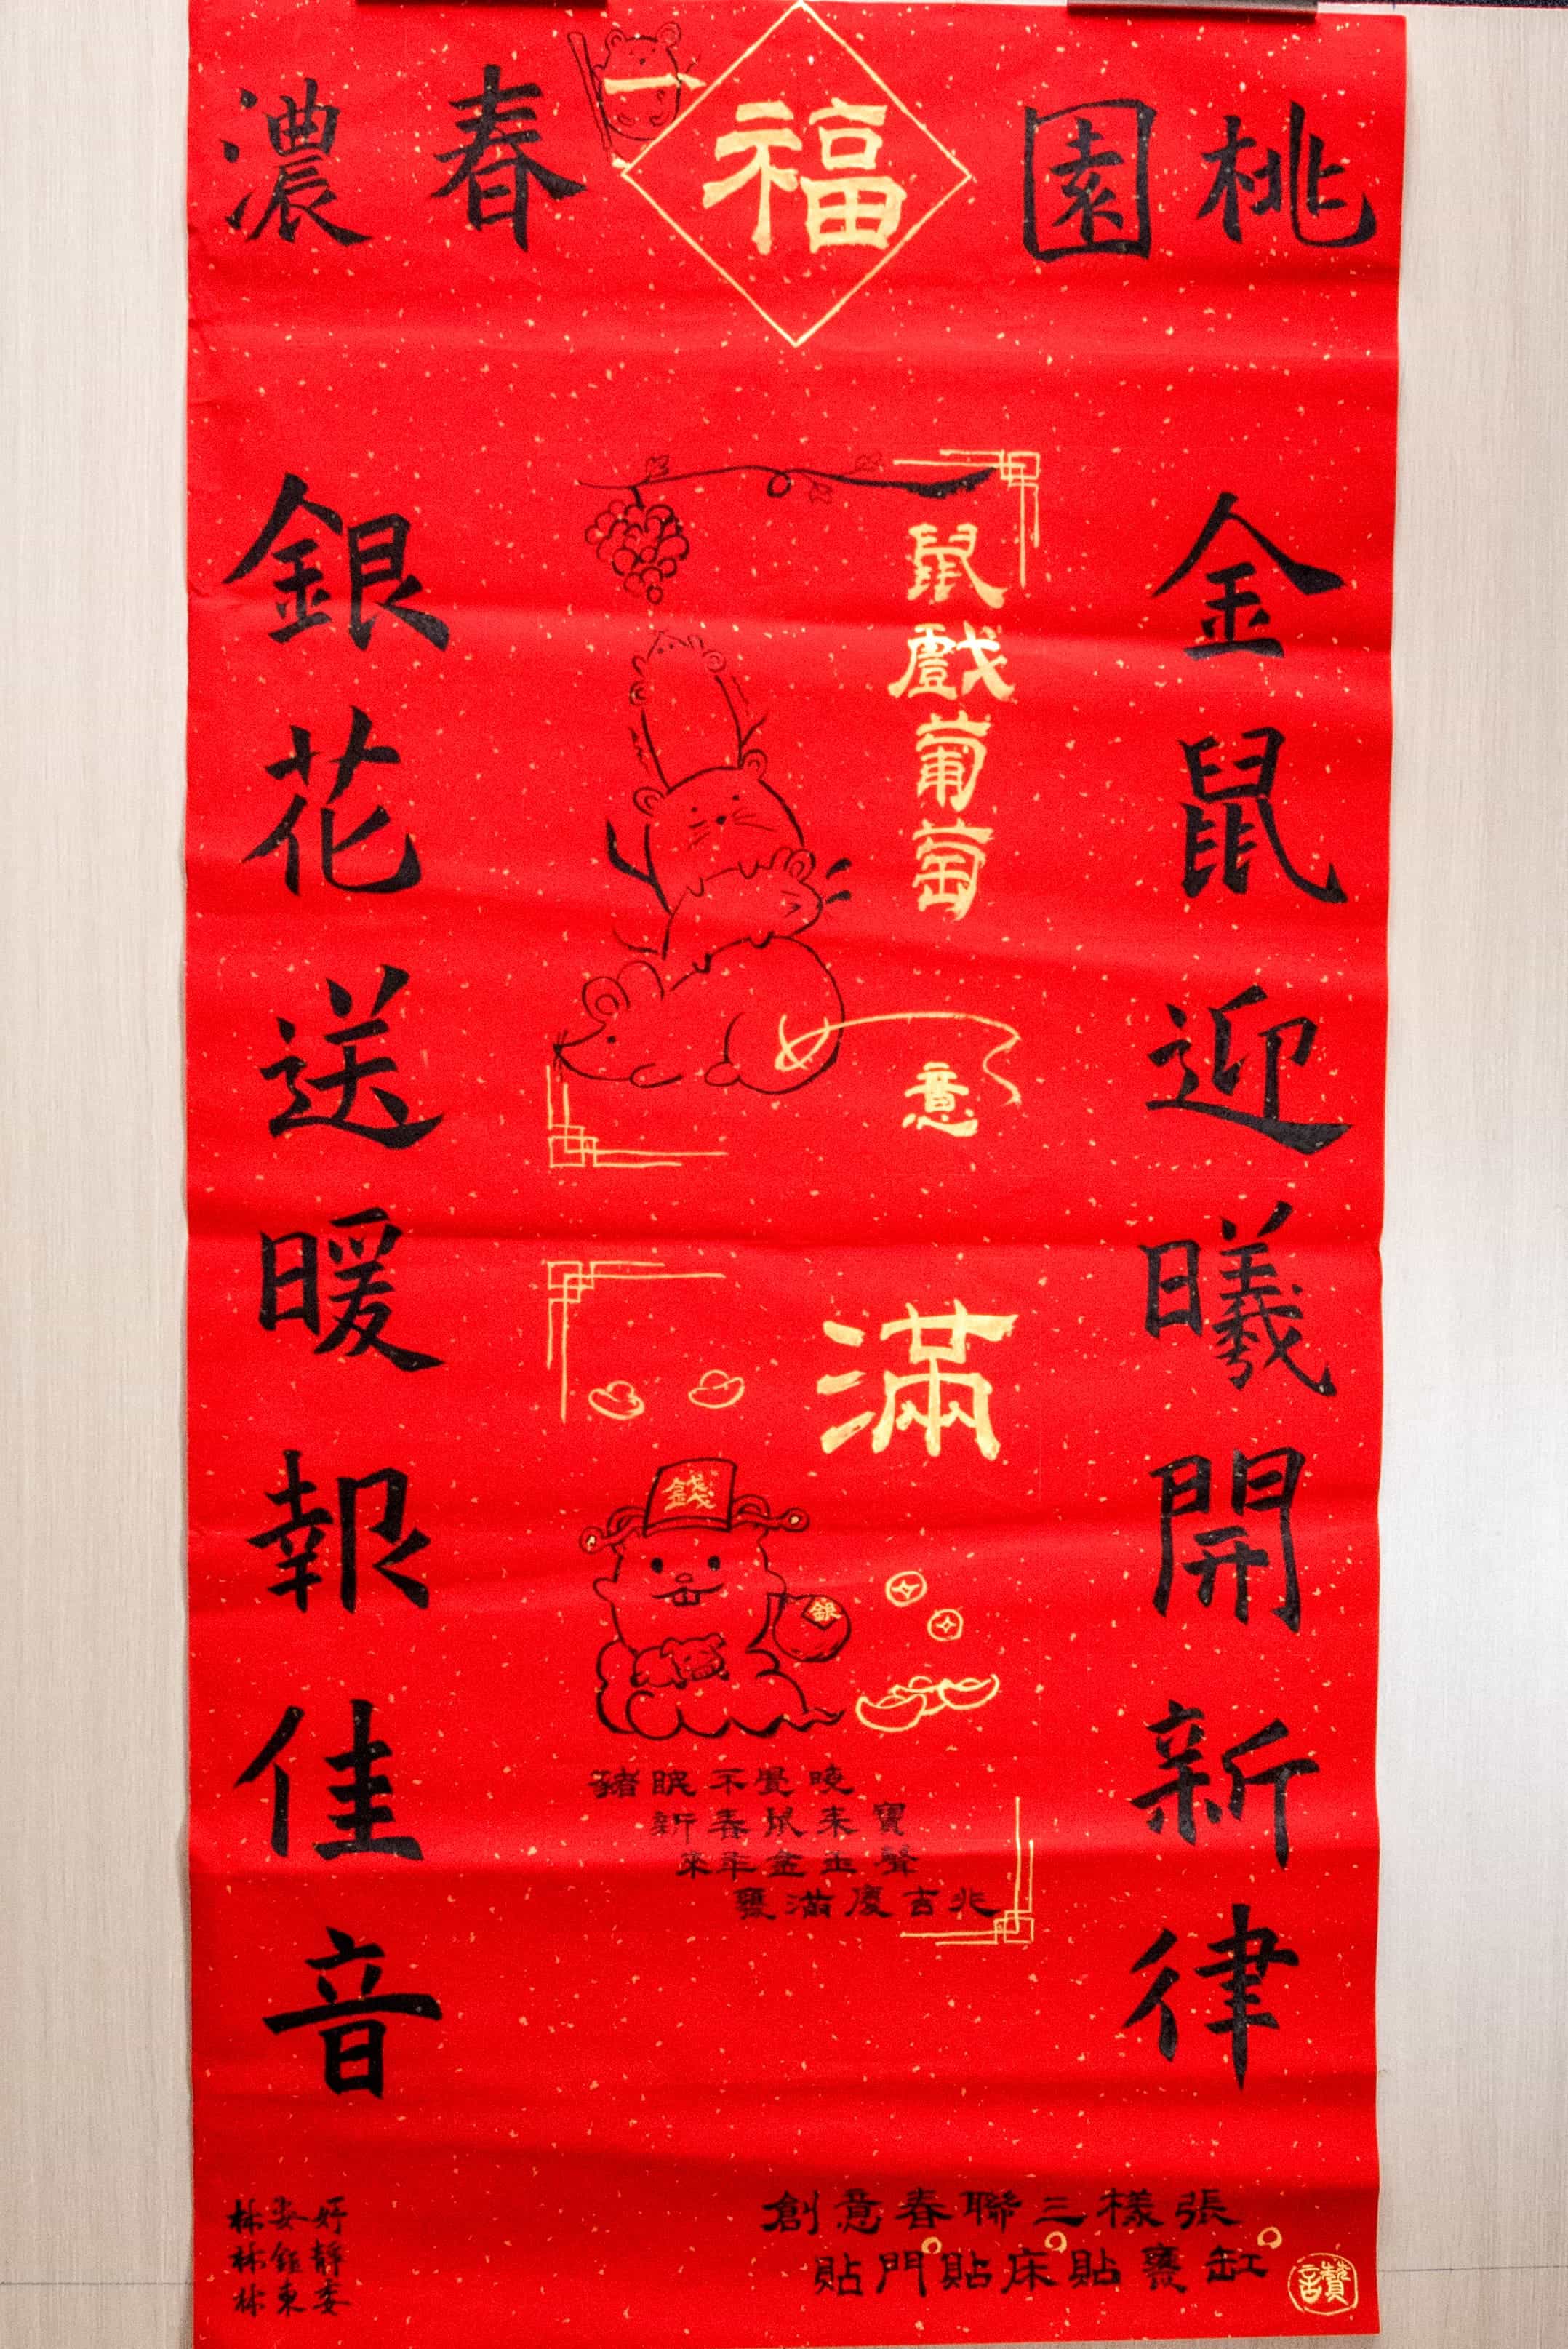 桃園春濃
福
金鼠迎曦開新律
銀花送暖報佳音
鼠戲葡萄
意
滿
錢
銀
豬眠不覺曉
新春鼠來寶
來年金玉聲
甕滿慶吉兆
創意春聯三樣張
貼門貼床貼甕缸
讚